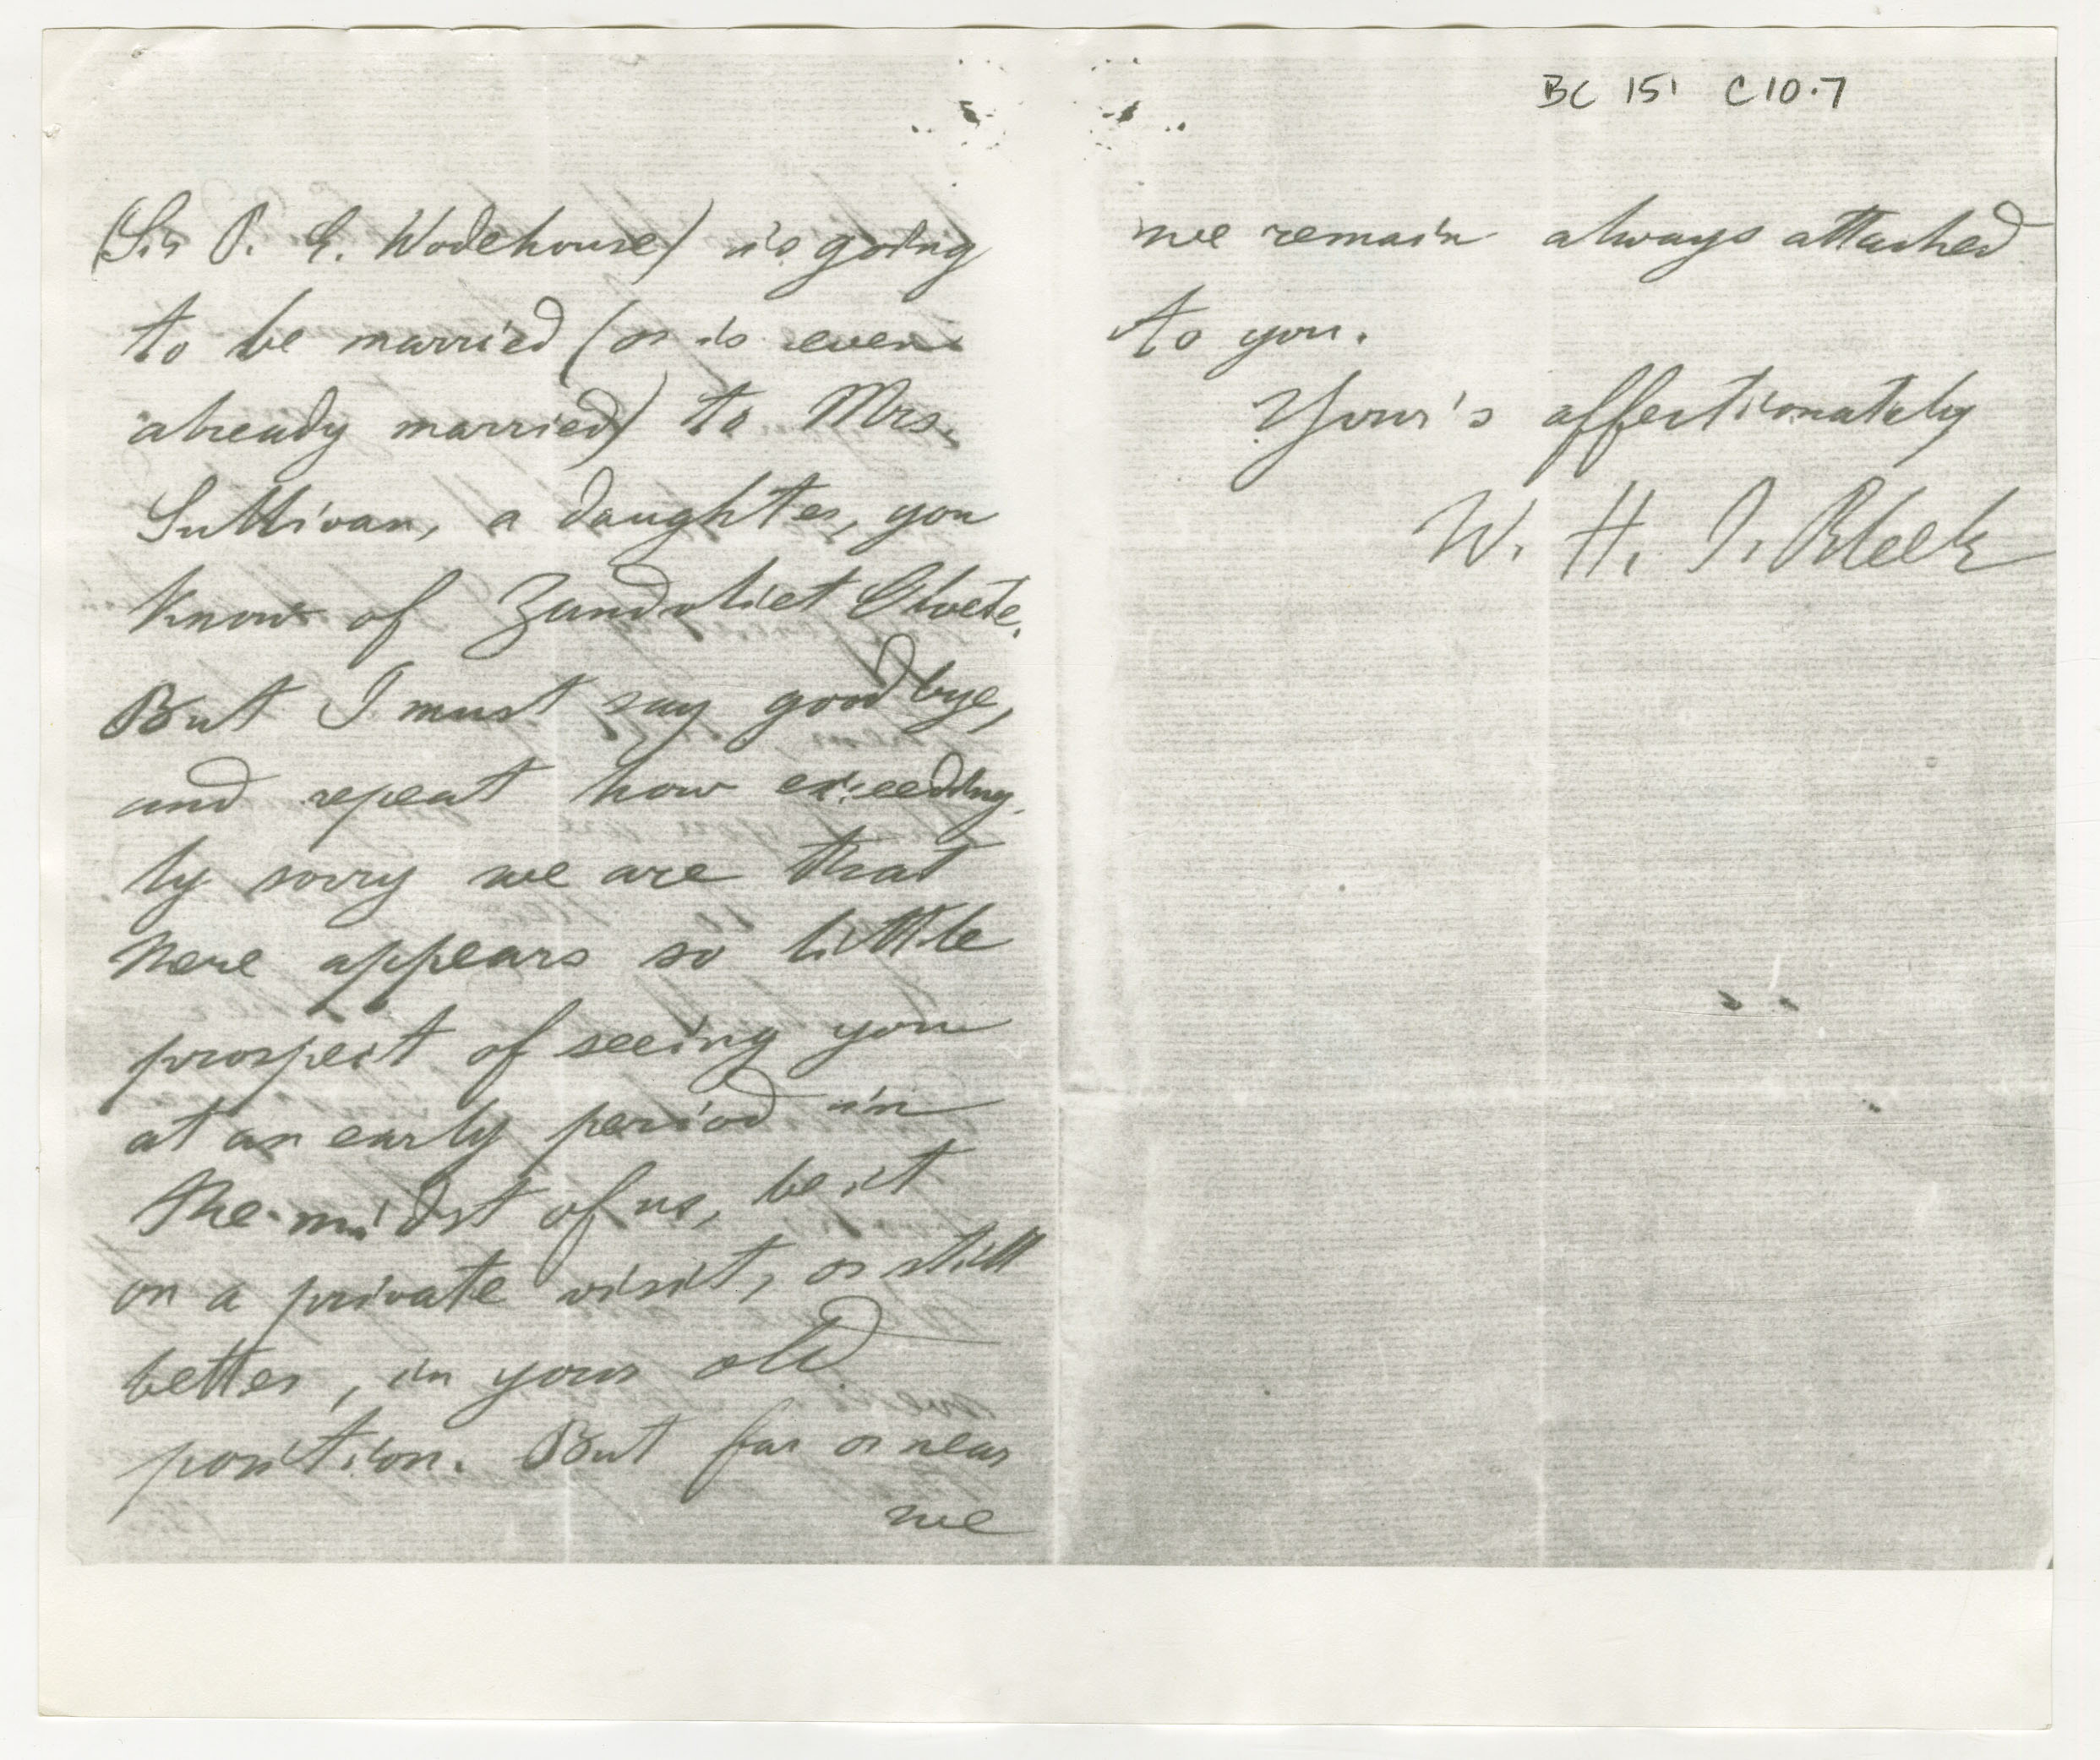 BC 151 C10.7
(Sir P. E. Wodehouse) is going
to be married (or is even
already married) to Mrs.
Sullivan, a daughter, you
know of Zandvliet Cloete.
But I must say goodbye,
and repeat how exceeding
ly sorry we are that
there appears so little
prospect of seeing you
at an early period in
the midst of us, be it
on a private visit, or still
better, in your old
position. But far or near
we
we remain always attached
to you.
Your's affectionately
W. H. I. Bleek